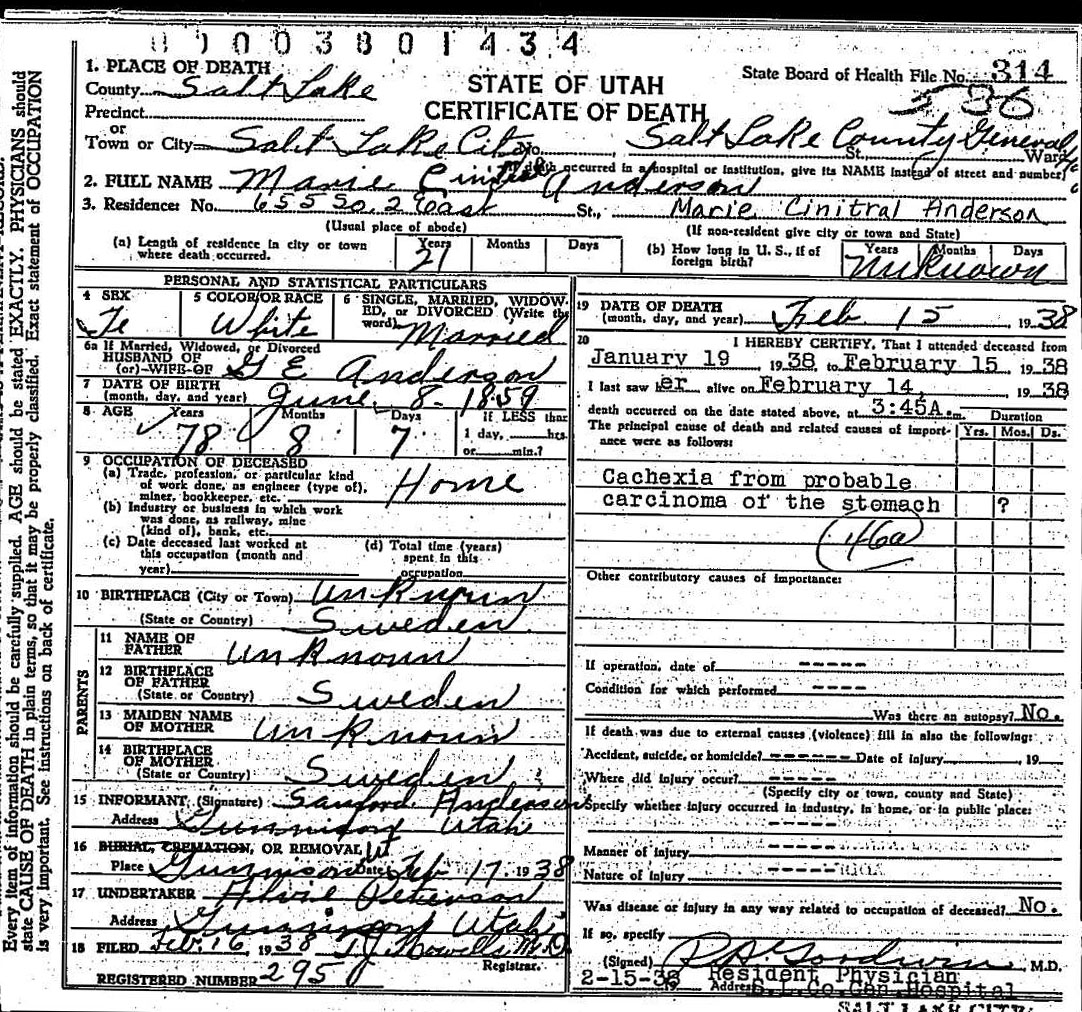 0 0 0 0 3 8 0 1 4 3 4
1. PLACE OF DEATH
County Salt Lake
Precinct
or
Town or City Salt Lake City
STATE OF UTAH
CERTIFICATE OF DEATH
State Board of Health File No. 314
36
No. Salt Lake County General
St. Ward
(If death occurred in a hospital or institution, give its NAME instead of street and number)
2. FULL NAME Marie Anderson
3. Residence: No. 655 So. 2 East St., Marie Cinitral Anderson
(Usual place of abode) (If non-resident give city or town and State)
(a) Length of residence in city or town where death occurred. Years 21 Months Days
(b) How long in U. S., if of foreign birth? Years Months Days Unknown
PERSONAL AND STATISTICAL PARTICULARS
4 SEX Fe
5 COLOR OR RACE White
6 SINGLE, MARRIED, WIDOWED, or DIVORCED (Write the word) Married
6a If Married, Widowed, or Divorced
HUSBAND OF
(or) WIFE OF G E Anderson
7 DATE OF BIRTH
(month, day, and year) June 8 - 1859
8 AGE Years 78 Months 8 Days 7 If LESS than
1 day, hrs.
or min.?
9 OCCUPATION OF DECEASED
(a) Trade, profession, or particular kind
of work done, as engineer (type of),
miner, bookkeeper, etc. Home
(b) Industry or business in which work
was done, as railway, mine
(kind of), bank, etc.
(c) Date deceased last worked at
this occupation (month and
year)
(d) Total time (years)
spent in this
occupation
10 BIRTHPLACE (City or Town) Unknoun
(State or Country) Sweden
PARENTS
11 NAME OF
FATHER Unknoun
12 BIRTHPLACE
OF FATHER
(State or Country) Sweden
13 MAIDEN NAME
OF MOTHER Unknoun
14 BIRTHPLACE
OF MOTHER
(State or Country) Sweden
15 INFORMANT (Signature) Sanford Anderson
Address Gunnison Utah
16 BURIAL, CREMATION, OR REMOVAL
Place Gunnison Ut Date Feb 17, 1938
17 UNDERTAKER Peterson
Address Gunnison Utah
18 FILED Feb. 16, 1938 T J Howells M.D.
Registrar.
REGISTERED NUMBER 295
19 DATE OF DEATH
(month, day, and year) Feb 15 1938
20 I HEREBY CERTIFY, That I attended deceased from
January 19 1938 to February 15 1938
I last saw her alive on February 14, 1938
death occurred on the date stated above, at 3:45A.m. Duration
The principal cause of death and related causes of importance were as follows: Yrs. Mos. Ds.
Cachexia from probable
carcinoma of the stomach ?
(46a)
Other contributory causes of importance:
If operation, date of -----
Condition for which performed ----
Was there an autopsy? No.
If death was due to external causes (violence) fill in also the following:
Accident, suicide, or homicide? ----- Date of injury 19
Where did injury occur? -----
(Specify city or town, county and State)
Specify whether injury occurred in industry, in home, or in public place:
-----
Manner of injury -----
Nature of injury -----
Was disease or injury in any way related to occupation of deceased? No.
If so, specify
(Signed) R A Goodwin, M.D.
2-15-38 Resident Physician
19 Address S.L.Co.Gen.Hospital
SALT LAKE CITY
Every item of information should be carefully supplied. AGE should be stated EXACTLY. PHYSICIANS should
state CAUSE OF DEATH in plain terms, so that it may be properly classified. Exact statement of OCCUPATION
is very important. See instructions on back of certificate.